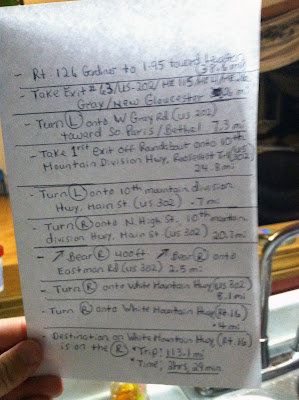 - Rt. 126 Gardiner to I-95 toward Lewiston
38.6 mi
- Take Exit #63/US-202/ME 115/ME 4/ME 26
Gray/New Gloucester .26 mi
- Turn (L) onto W Gray Rd (US 202)
toward So Paris/Bethel 7.3 mi
- Take 1rst Exit off Roundabout onto 10th
Mountain Division Hwy, Roosevelt Trl (US 302)
24.8 mi
- Turn (L) onto 10th mountain division
Hwy, Main St. (US 302) .7 mi
- Turn (R) onto N. High St, 10th mountain
division Hwy, Main St. (US 302) 20.7 mi
- ↗ Bear (R) 400ft ↗ Bear (R) onto
Eastman Rd (US 302) 2.5 mi
- Turn (R) onto White Mountain Hwy (US 302)
8.1 mi
- Turn (R) onto White Mountain Hwy (Rt. 16)
.4 mi
- Destination on White Mountain Hwy (Rt. 16)
is on the (R) *Trip: 113.1 mi
*Time: 2hrs, 29min